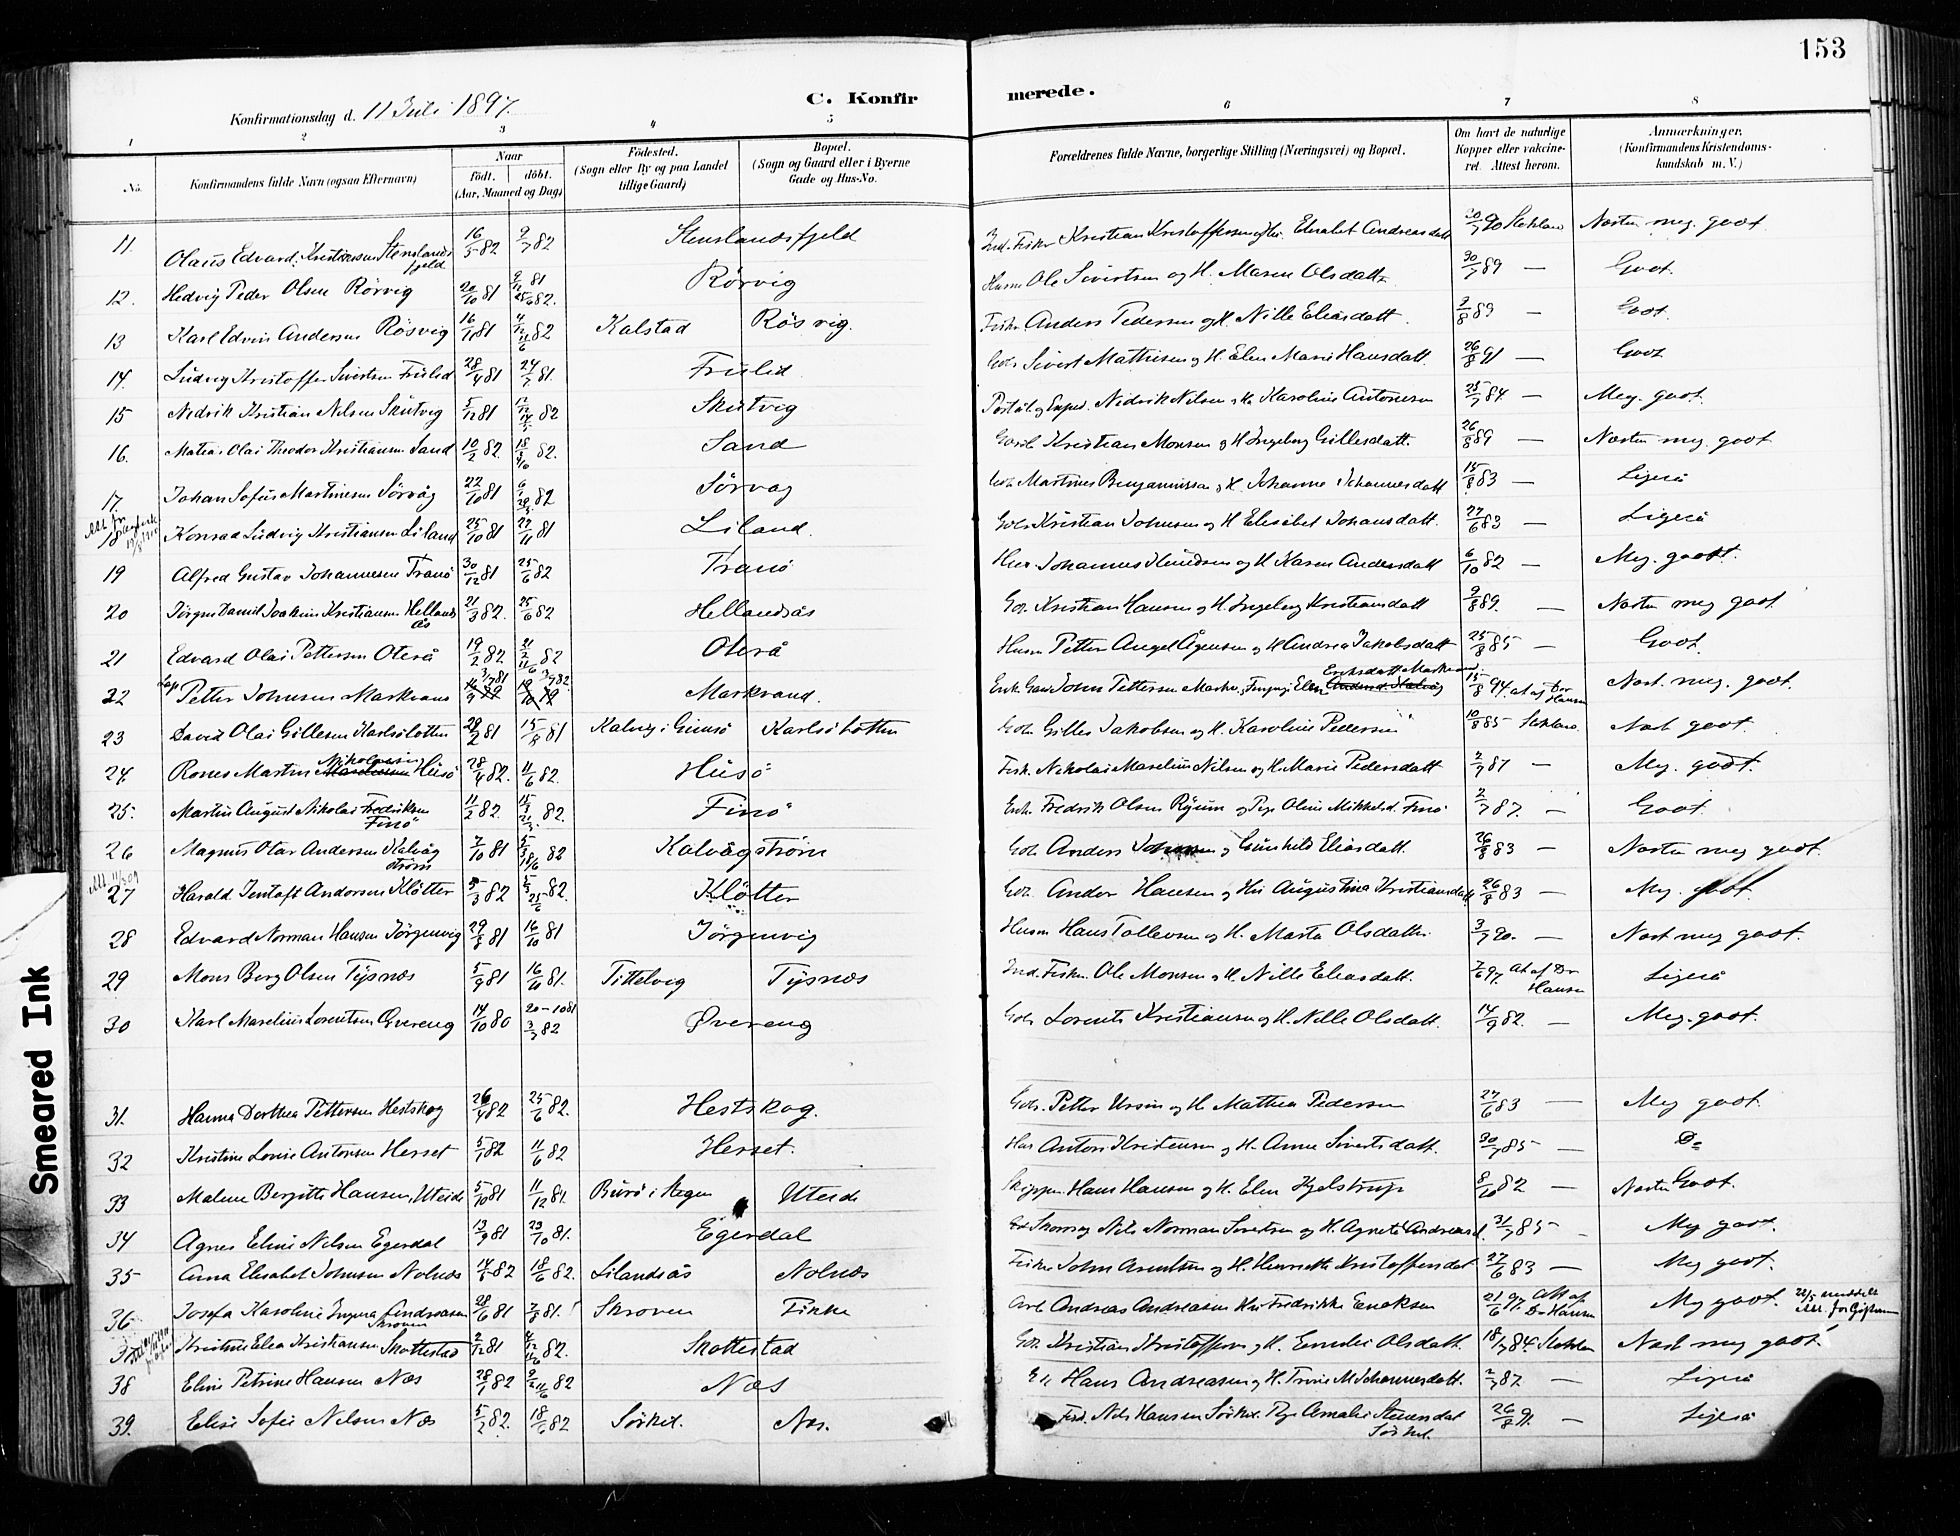 153
Konfirmationsdag d. 11 Juli 1897.
C. Konfirmerede.
1 2 3 4 5 6 7 8
No. Konfirmandens fulde Navn (ogsaa Efternavn) Naar født. døbt. (Aar, Maaned og Dag) Fødested. (Sogn eller By og paa Landet tillige Gaard) Bopæl. (Sogn og Gaard eller i Byerne Gade og Hus-No. Forældrenes fulde Navne, borgerlige Stilling (Næringsvei) og Bopæl. Om havt de naturlige Kopper eller vakcineret. Attest herom. Anmærkninger. (Konfirmandens Kristendomskundskab m. V.)
11 Olaus Edvard Kristiansen Stenslandsfjeld 16/5 82 9/7 82 Stenslandsfjeld Ind. Fisker Kristian Kristoffersen Elisabet Andreasdatt 20/7 90 Næsten meg. godt
12. Hedvig Peder Olsen Rörvig 20/10 81 25/6 82. Rörvig Husm Ole Sivertsen og H. Maren Olsdatter 30/7 89 — Godt.
13 Karl Edvin Andersen Rösvig 16/11 81 82 Kalstad Rösvig. Fisker Anders Pedersen og H. Nille Eliasdatt. 2/8 89 — Godt.
14. Ludvig Kristoffer Sivertsen Fuslid 28/4 81 24/7 81. Sivert Mathisen og H. Elen Marie Hansdatt. 26/8 91 — Godt
15 Nedrik Kristian Nilsen Skutvig 5/12 81 82 Skutvig Nedrik Nilsen Karoline Antonsen 25/7 84 — Meg. godt.
16. Matias Olai Theodor Kristiansen Sand 10/2 82. 82. Sand Kristian Monsen og H Ingeborg Gillesdatt. 26/8 89 — Næsten meg. godt
17. Johan Sofus Martinesen Sörvåg 22/10 81 82 Sörvåg Martines Benjaminsen og H. Johanne Johannesdatt 15/8 83 — Ligeså
18 Konrad Ludvig Kristiansen Liland 25/10 81 27/11 81 Liland. Kristian Johnsen og H Elisabet Johansdatt. 27/6 83 — Ligeså
19 Alfred Gustav Johannesen Tranö 30/12 81 25/6 82 Tranö Johannes Knudsen og H Karen Andersdatt 6/10 82 — Meg. godt.
20 Jörgen Daniel Joakim Kristiansen Hellandsås 21/3 82. 25/6 82 Hellandsås Kristian Hansen og H. Ingeborg Kristiansdatt 2/8 89. — Næsten meg godt
21 Edvard Olai Pettersen Oterå 19/2 82 11/6 82 Oterå Husm Petter Angel Ågensen og H Andrea Jakobsdatt 25/8 85 — Godt.
22 Lap Petter Johnsen Markvand 3/7 82. Markvand. John Pettersen Eriksdatt Markvand 15/8 94. at af Dr Hansen Næst. meg. godt.
23 David Olai Gillesen Karlsölotten 28/2 81 15/8 81 Kalvig i Gimsö Karlsölotten Gilles Jakobsen og H. Karoline Pedersen 10/8 85 Næst godt
24. Rones Martin Nikolaisen Husö 28/4 82. 11/6 82. Husö Fisk. Nikolai Marelius Nilsen og H. Marie Pedersdatt 2/7 87 — Meg. godt.
25. Martin August Nikolai Fredriksen Finö 11/2 82. 82. Finö Enk. Fredrik Olsen og Pige Oline Mikkelsd. Finö 2/7 87. — Godt.
26 Magnus Otar Andersen Kalvågström 7/10 81 18/6 82 Kalvågström Anders Johnsen og Gunhild Eliasdatt. 26/8 83 — Næsten meg godt.
27 Harald Jentoft Andersen Klötter 5/3 82 25/6 82. Klötter Ander Hansen og Augustina Kristiansdatt 26/8 83 — Meg. godt.
28 Edvard Norman Hansen Jörgenvig 29/8 81 16/10 81 Jörgenvig Husm Hans Tollevsen og H. Marta Olsdatter 3/7 90. — Næst meg godt.
29 Mons Berg Olsen Tysnæs 5/9 81 16/11 81. Tittelvig Tysnæs Ind. Fisker. Ole Monsen og H. Nille Eliasdatt. 7/6 97 At af Dr Hansen Ligeså
30 Karl Marelius Lorentsen Øvereng 14/10 80 20-10 81 3/7 82 Øvereng Lorents Kristiansen og H. Nille Olsdatt. 14/9 82. — Meg. godt.
31. Hanna Dorthea Pettersen Hestskog 26/4 82 25/6 82. Hestskog. Petter Ursin og H Mathea Pedersen 27/6 83 — Meg godt.
32 Kristine Lovise Antonsen Herset 5/1 82 11/6 82 Herset. Anton Kristensen og H. Anne Sivertsdatt. 30/7 85 — Do
33 Malene Bergitte Hansen, Uteide 5/10 81 11/12 81. Burö i Stegen Uteide Skipper Hans Hansen og H. Elen Kjelstrup 8/10 82 — Næsten Godt.
34 Agnes Eline Nilsen Egerdal 13/9 81 23/10 81. Egerdal Nils Norman Sivertsen og H. Agnete Andreasd. 31/7 85 — Meg godt.
35 Anna Elisabet Johnsen Nolnæs 14/5 82 18/6 82. Lilandsås Nolnæs Fisker John Arentsen og H. Henriette Kristoffersdat 27/6 83 — Meg godt.
36 Josefa Karoline Ingena Andreasen Skroven 28/6 81 7/8 81 Skroven Finke Arb Andreas Andreasen Fredrikke Enoksen 21/6 97. Att af Dr Hansen Meg godt. 22/5 meddelt Att. for Giftermål
Kristine Elea Kristiansen Skottestad 2/12 81 82. Skottestad Kristian Kristoffersen og H. Emelie Olsdatt. 18/7 84. Næst meg godt.
38 Eline Petrine Hansen Næs 28/1 82 11/6 82 Næs Hans Andreasen og H. Trine M. Johannesdatt. 2/7 87 — Ligeså
39. Elise Sofie Nilsen Næs 5/2 82. 18/6 82 Sörkil. Næs. Nils Hansen Sörkil. Pige Amalie Steensdat Sörkil. 26/8 91. — Ligeså
Smeared Ink